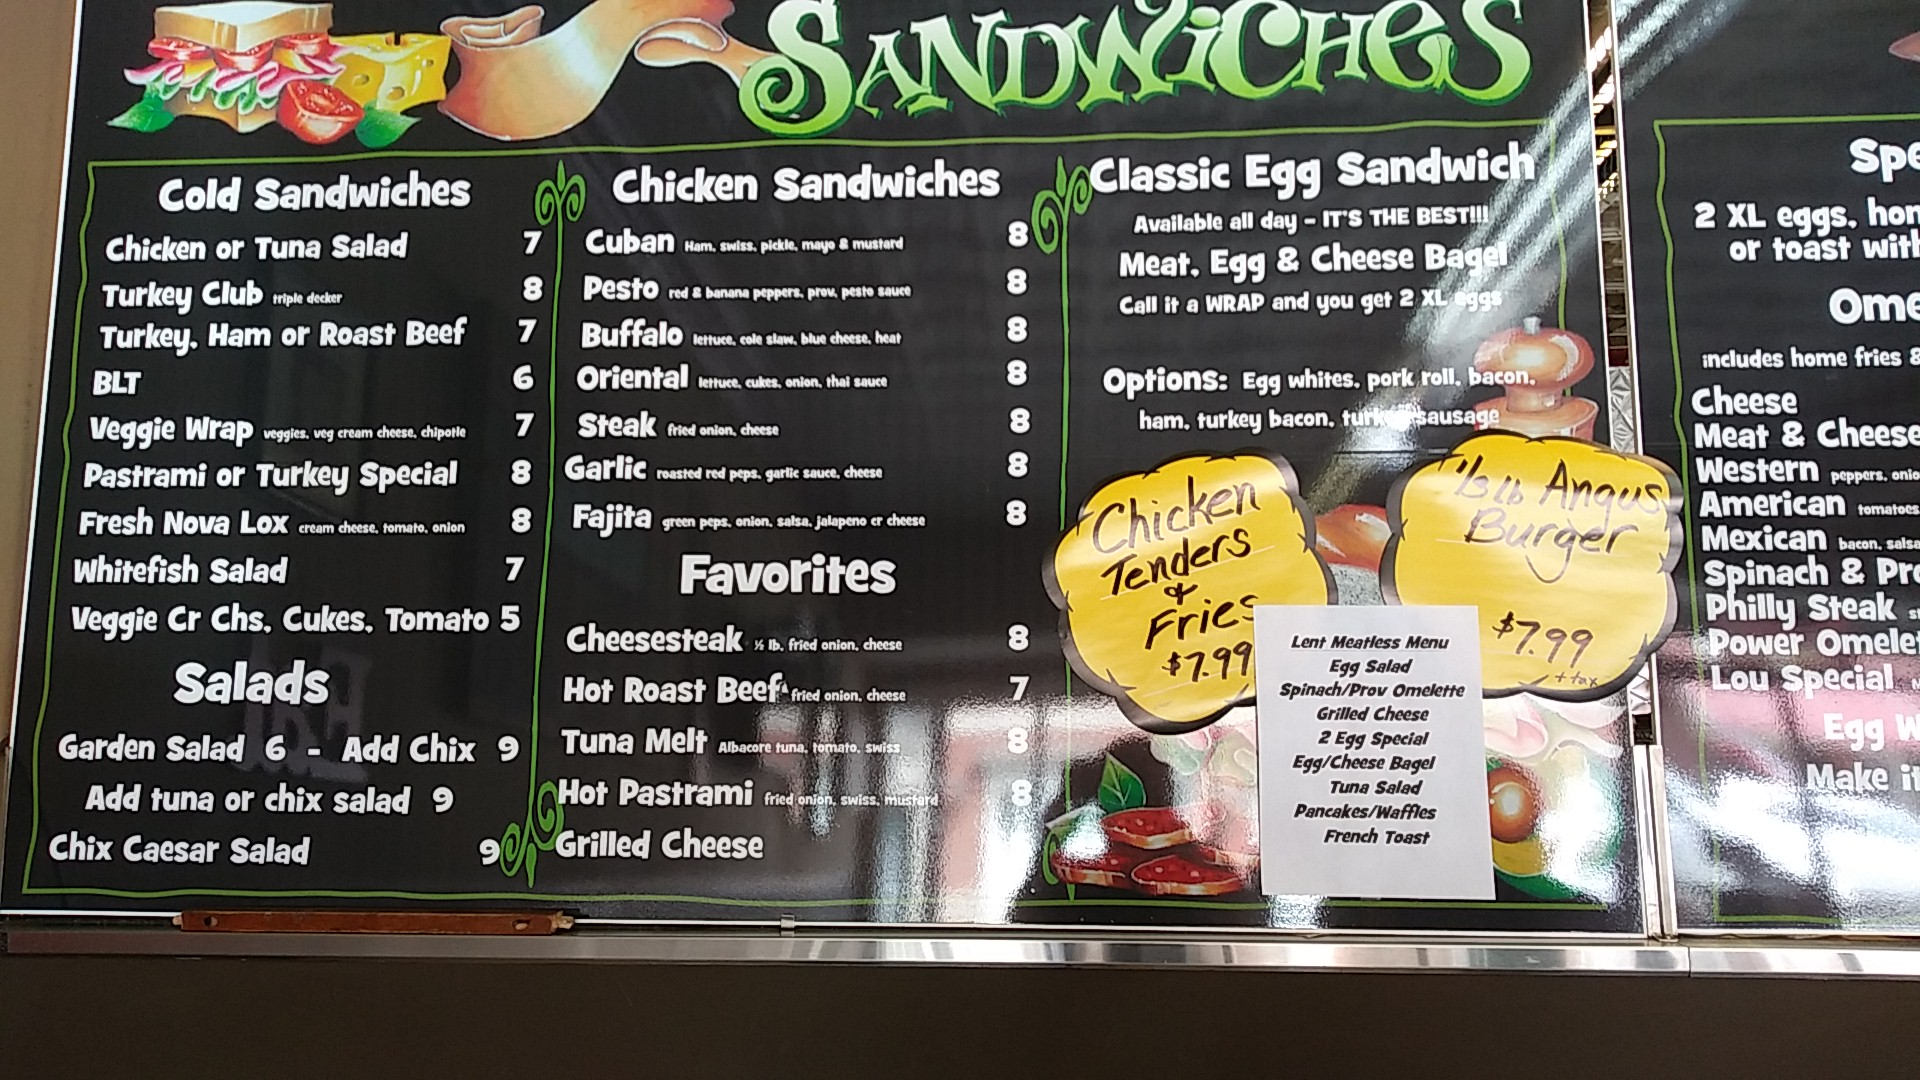 SANDWiCHeS
Cold Sandwiches
Chicken or Tuna Salad 7
Turkey Club triple decker 8
Turkey, Ham or Roast Beef 7
BLT 6
Veggie Wrap veggies, veg cream cheese, chipotle 7
Pastrami or Turkey Special 8
Fresh Nova Lox cream cheese, tomato, onion 8
Whitefish Salad 7
Veggie Cr Chs, Cukes, Tomato 5
Salads
Garden Salad 6 - Add Chix 9
Add tuna or chix salad 9
Chix Caesar Salad 9
Chicken Sandwiches
Cuban Ham, swiss, pickle, mayo & mustard 8
Pesto red & banana peppers, prov, pesto sauce 8
Buffalo lettuce, cole slaw, blue cheese, heat 8
Oriental lettuce, cukes, onion, thai sauce 8
Steak fried onion, cheese 8
Garlic roasted red peps, garlic sauce, cheese 8
Fajita green peps, onion, salsa, jalapeno cr cheese 8
Favorites
Cheesesteak ½ lb, fried onion, cheese 8
Hot Roast Beef fried onion, cheese 7
Tuna Melt Albacore tuna, tomato, swiss 8
Hot Pastrami fried onion, swiss, mustard 8
Grilled Cheese
Classic Egg Sandwich
Available all day - IT'S THE BEST!!!
Meat, Egg & Cheese Bagel
Call it a WRAP and you get 2 XL eggs
Options: Egg whites, pork roll, bacon,
ham, turkey bacon, turkey sausage
Chicken
Tenders
&
Fries
$7.99
1/3 lb Angus
Burger
$7.99
+ tax
Lent Meatless Menu
Egg Salad
Spinach/Prov Omelette
Grilled Cheese
2 Egg Special
Egg/Cheese Bagel
Tuna Salad
Pancakes/Waffles
French Toast
Spe
2 XL eggs, hom
or toast with
Ome
includes home fries &
Cheese
Meat & Cheese
Western peppers, onio
American tomatoes,
Mexican bacon, salsa
Spinach & Pro
Philly Steak
Power Omele
Lou Special
Egg W
Make it